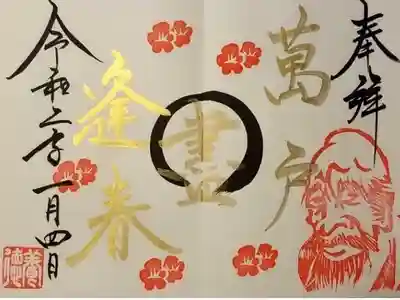 奉拝
萬戸
盡
逢春
令和二年一月四日
養徳